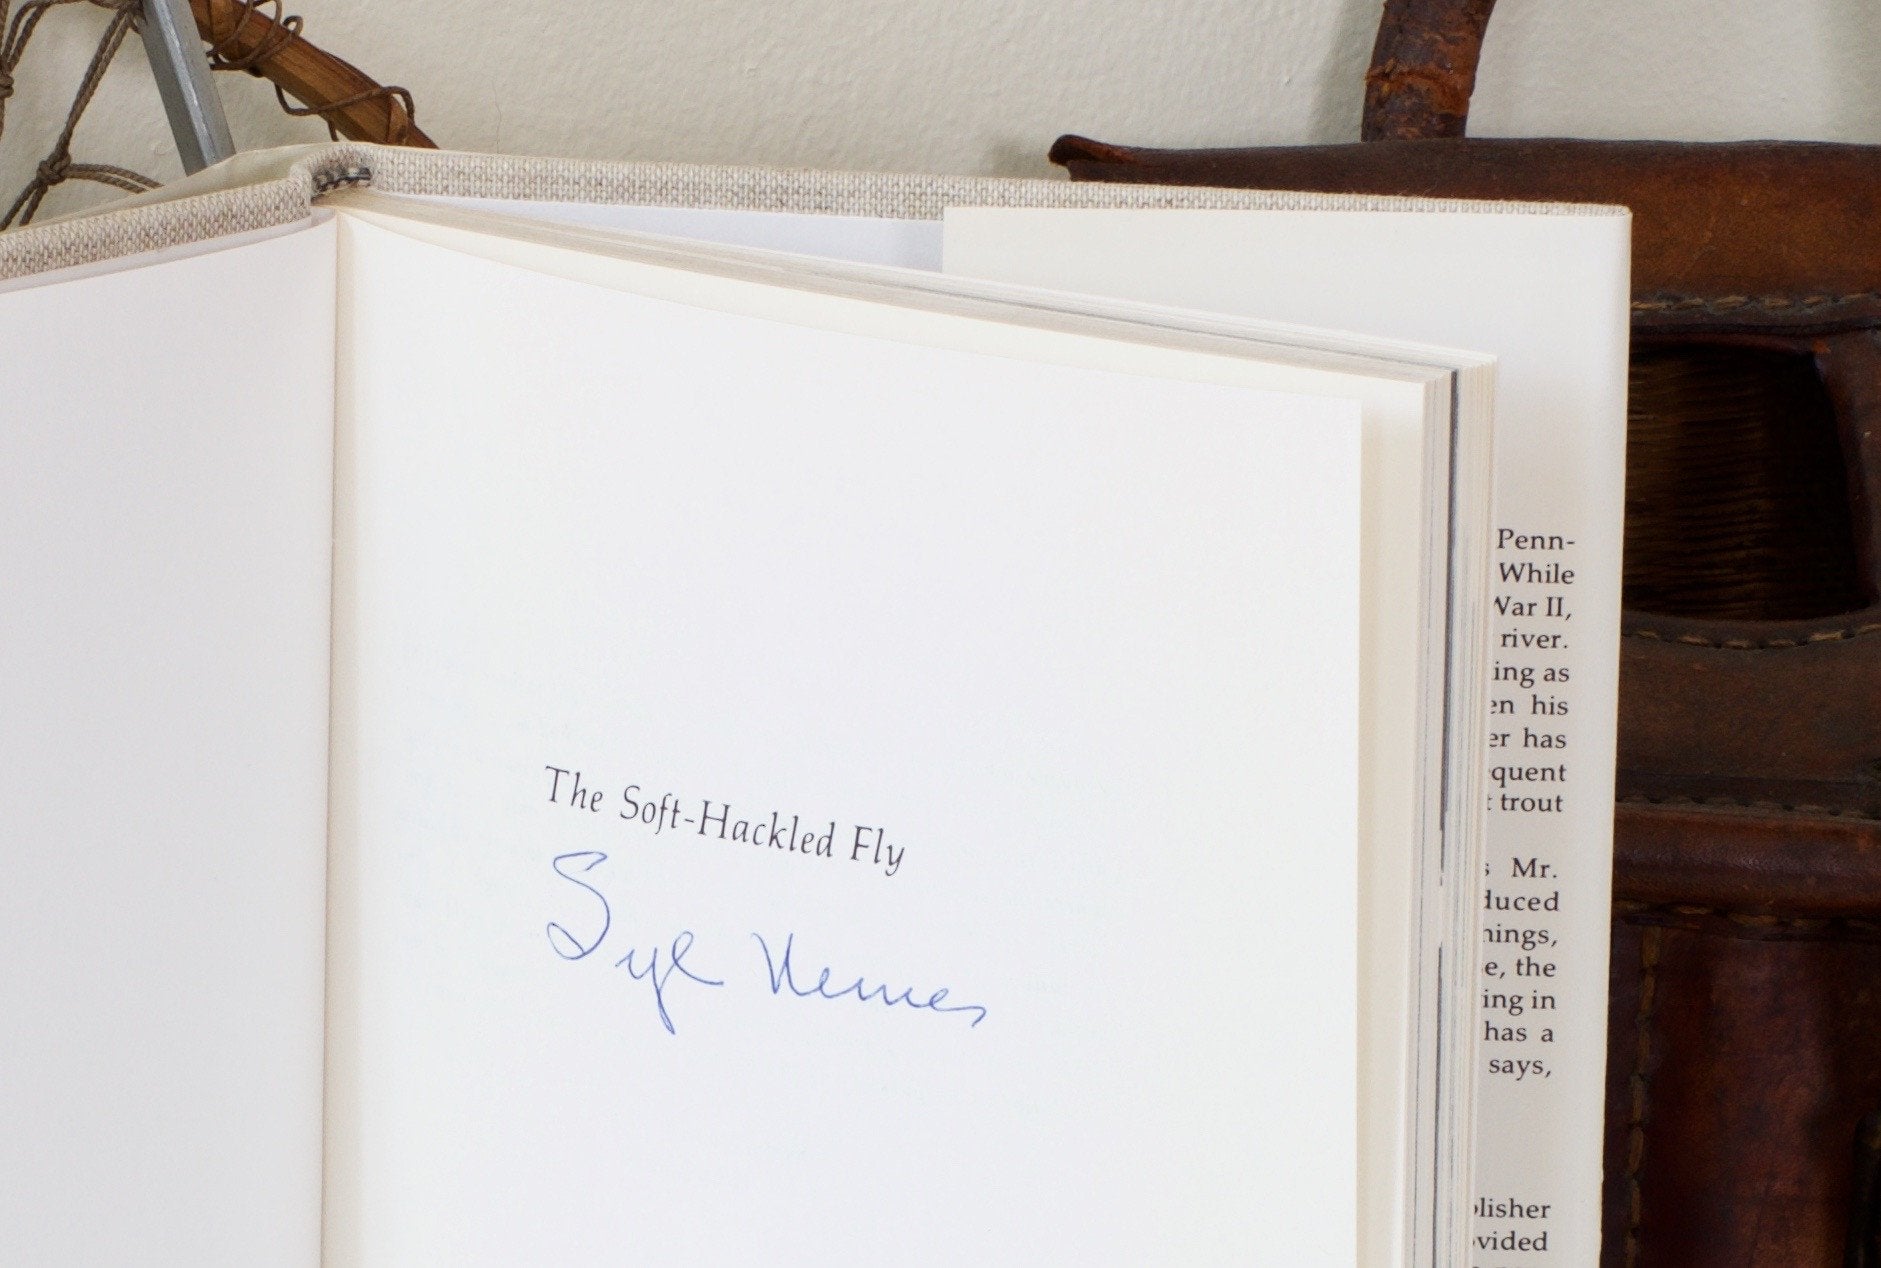 The Soft-Hackled Fly
Syl Nemes
Penn-
While
War II,
river.
ing as
en his
er has
quent
t trout
s Mr.
duced
hings,
e, the
ing in
has a
says,
blisher
ovided